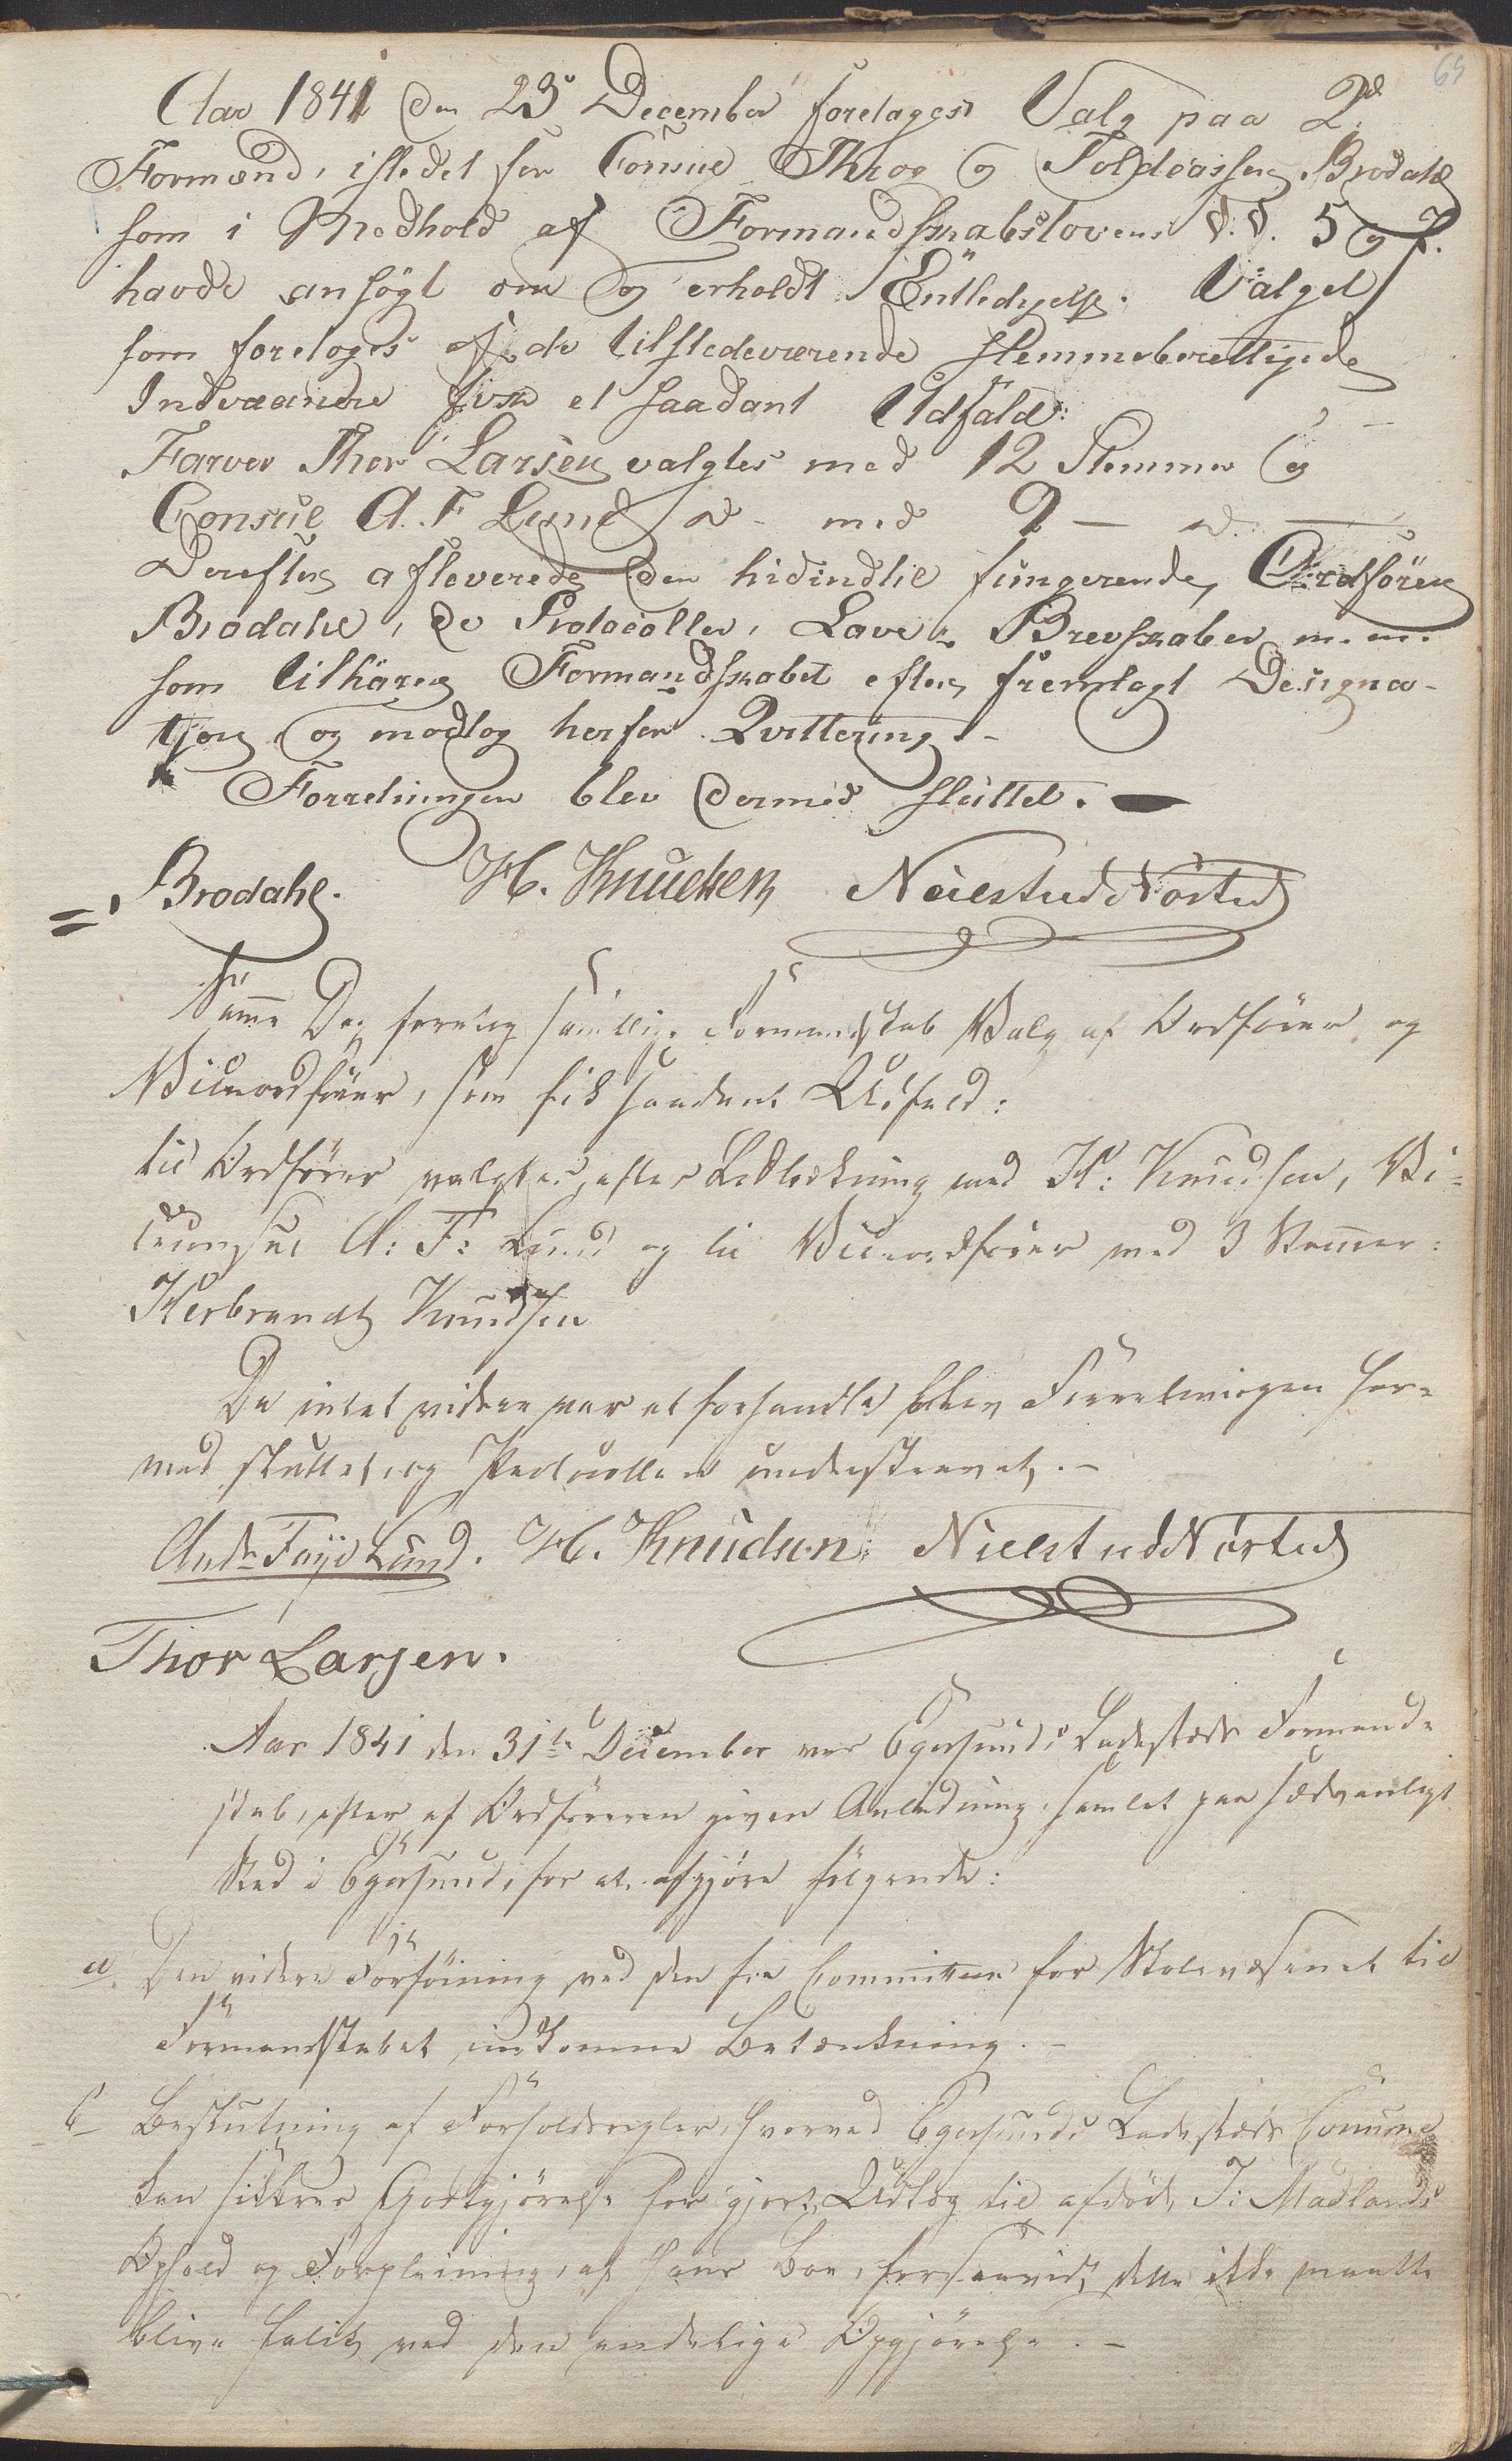 65
Aar 1841 den 23 December foretoges Valg paa 2de
Formænd, istedet for Consul Krog og Toldcasserer Brodahl
som i Medhold af Formandskabslovens §.§. 5 og 7.
havde ansögt om og erholdt Entledigelse. Valget
som foretoges af de tilstedeværende stemmeberettigede
Indvaanere fik et saadant Udfald:
Farver Thor Larsen valgtes med 12 Stemmer og
Consul A. F Lund do med 9 — do. —
Derefter afleverede den hidindtil fungerende Ordförer
Brodahl, de Protocoller, Love, Brevskaber m. m.
som tilhörer Formandskabet efter fremlagt Designa-
tjon og modtog herfor Qvittering. -
Forretningen blev dermed sluttet. —
Brodahl. H. Knudsen Nielstud Nörsted
Samme Dag foretog samtlige Formandskab Valg af Ordförer og
Viceordförer, som fik saadant Udfald:
til Ordförer valgtes, efter Lodtrækning med H: Knudsen, Vi-
ceconsul A: F: Lund og til Viceordförer med 3 Stemmer:
Herbrandt Knudsen
Da intet videre var at forhandle blev Forretningen her-
med sluttet, og Protocollen underskrevet. -
Andr. Faye Lund. H. Knudsen Nielstud Nörsted
Thor Larsen.
Aar 1841 den 31te December var Egersunds Ladesteds Formand-
skab, efter af Ordföreren given Anledning, samlet paa sædvanligt
Sted i Egersund, for at afgjöre fölgende:
a. Den videre Forföining ved den fra Committeen for Skolevæsenet til
Formandskabet indkomne Betænkning. -
b Beslutning af Forholdsregler, hvorved Egersunds Ladesteds Comune
kan sikkres Godtgjörelse for gjort Udlæg til afdöde J: Madlands
Ophold og Forpleining, af hans Boe, forsaavidt dette ikke maatte
blive falit ved den endelige Opgjörelse. -